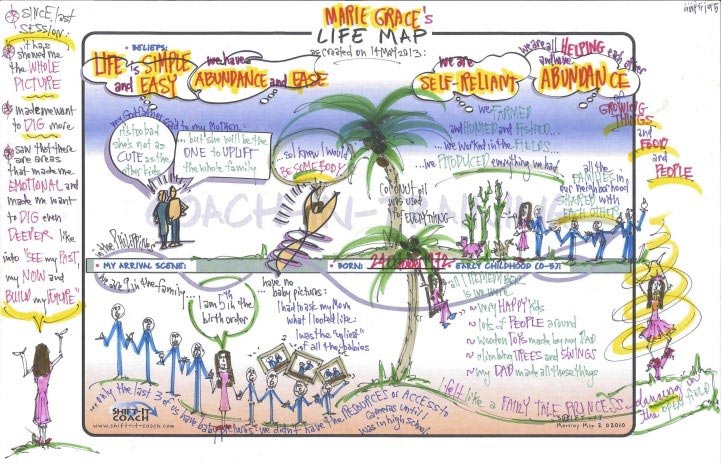 MARIE GRACE's
LIFE MAP
as created on 14 May 2013:
SINCE last
SESSION:
it has
showed me
the WHOLE
PICTURE
made me want
to DIG more
saw that there
are areas
that made me
EMOTIONAL and
made me want
to DIG even
DEEPER like
into "SEE my PAST,
my NOW and
BUILD my FUTURE"
BELIEFS:
LIFE is SIMPLE
and EASY
we have
ABUNDANCE and EASE
we are
SELF-RELIANT
we are all HELPING each other
and have
ABUNDANCE
my Godfather said to my mother:
it's too bad
she's not as
CUTE as the
other kids
... but she will be the
ONE to UPLIFT
the whole family
... so I knew I would
BE SOMEBODY
we FARMED
and HUNTED and FISHED...
... we worked in the FIELDS...
...we PRODUCED everything we had
coconut oil
was used
for EVERYTHING
... all the
FAMILIES in
our neighborhood
SHARED with
each other
GROWING
THINGS
and
FOOD
and
PEOPLE
COACH-IN-
in the PHILIPPINES
MY ARRIVAL SCENE:
BORN:
1972
EARLY CHILDHOOD (0-5):
we are 9 in the family...
I am 5th in the
birth order
... have no
baby pictures:
I had to ask my Mom
what I looked like:
I was the "ugliest"
of all the babies
all I remember
is we were
~ very HAPPY kids
~ lots of PEOPLE around
~ wooden TOYS made by my DAD
~ climbing TREES and SWINGS
~ my DAD made all these things
I felt like a FAIRY TALE PRINCESS dancing in
the OPEN FIELD
... only the last 3 of us have baby pictures: we didn't have the RESOURCES or ACCESS to
cameras until I
was in high school
SHIFT-IT
COACH
www.shift-it-coach.com
Memory Map I ©2010